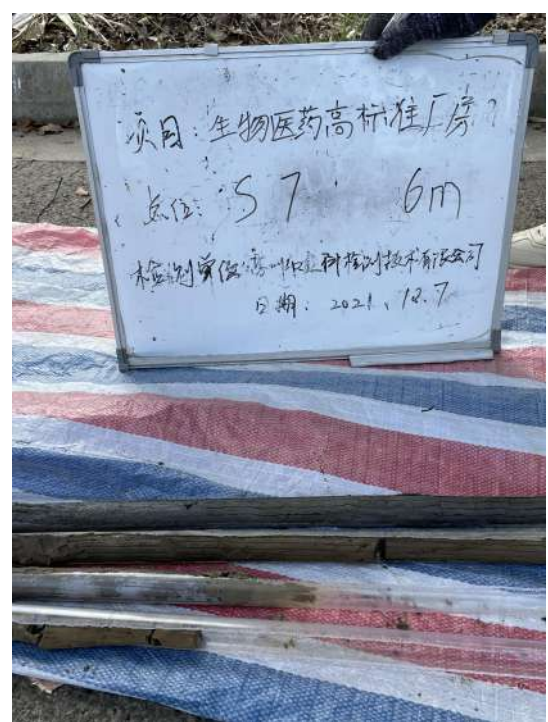 项目：生物医药高标准厂房
点位：S7 6m
检测单位：苏州 科检测技术有限公司
日期：2021.12.7